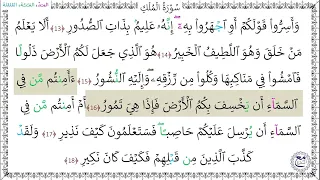 سُورَةُ الْمُلْكِ
وَأَسِرُّوا۟ قَوْلَكُمْ أَوِ ٱجْهَرُوا۟ بِهِۦٓ ۖ إِنَّهُۥ عَلِيمٌۢ بِذَاتِ ٱلصُّدُورِ (13) أَلَا يَعْلَمُ
مَنْ خَلَقَ وَهُوَ ٱللَّطِيفُ ٱلْخَبِيرُ (14) هُوَ ٱلَّذِى جَعَلَ لَكُمُ ٱلْأَرْضَ ذَلُولًا
فَٱمْشُوا۟ فِى مَنَاكِبِهَا وَكُلُوا۟ مِن رِّزْقِهِۦ ۖ وَإِلَيْهِ ٱلنُّشُورُ (15) ءَأَمِنتُم مَّن فِى
ٱلسَّمَآءِ أَن يَخْسِفَ بِكُمُ ٱلْأَرْضَ فَإِذَا هِىَ تَمُورُ (16) أَمْ أَمِنتُم مَّن فِى
ٱلسَّمَآءِ أَن يُرْسِلَ عَلَيْكُمْ حَاصِبًا ۖ فَسَتَعْلَمُونَ كَيْفَ نَذِيرِ (17) وَلَقَدْ
كَذَّبَ ٱلَّذِينَ مِن قَبْلِهِمْ فَكَيْفَ كَانَ نَكِيرِ (18)